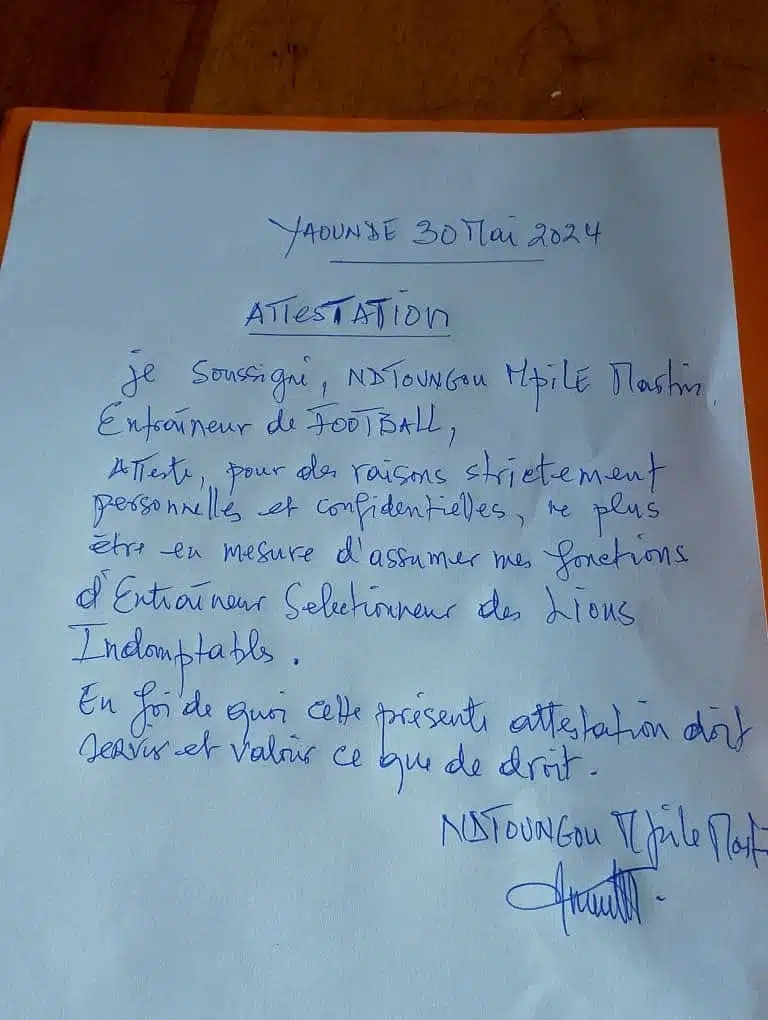 YAOUNDE 30 Mai 2024
ATTESTATION
je soussigné, NDTOUNGOU MpilE Martin,
Entraîneur de FOOTBALL,
Atteste, pour des raisons strictement
personnelles et confidentielles, ne plus
être en mesure d'assumer mes fonctions
d'Entraîneur Selectionneur des Lions
Indomptables.
En foi de quoi cette présente attestation doit
servir et valoir ce que de droit.
NDTOUNGOU Mpile Mart